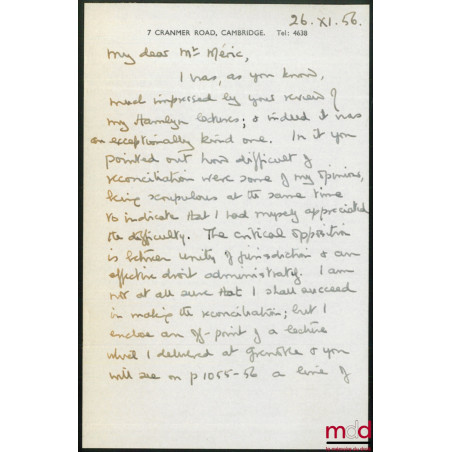 26. XI. 56.
7 CRANMER ROAD, CAMBRIDGE. Tel: 4638
My dear Mr Méric,
I was, as you know,
most impressed by your review of
my Hamlyn lectures; & indeed it was
an exceptionally kind one. In it you
pointed out how difficult of
reconciliation were some of my opinions,
being scrupulous at the same time
to indicate that I had myself appreciated
the difficulty. The critical opposition
is between unity of jurisdiction & an
effective droit administratif. I am
not at all sure that I shall succeed
in making the reconciliation; but I
enclose an off-print of a lecture
which I delivered at Grenoble & you
will see on p 1055-56 a line of
mdd